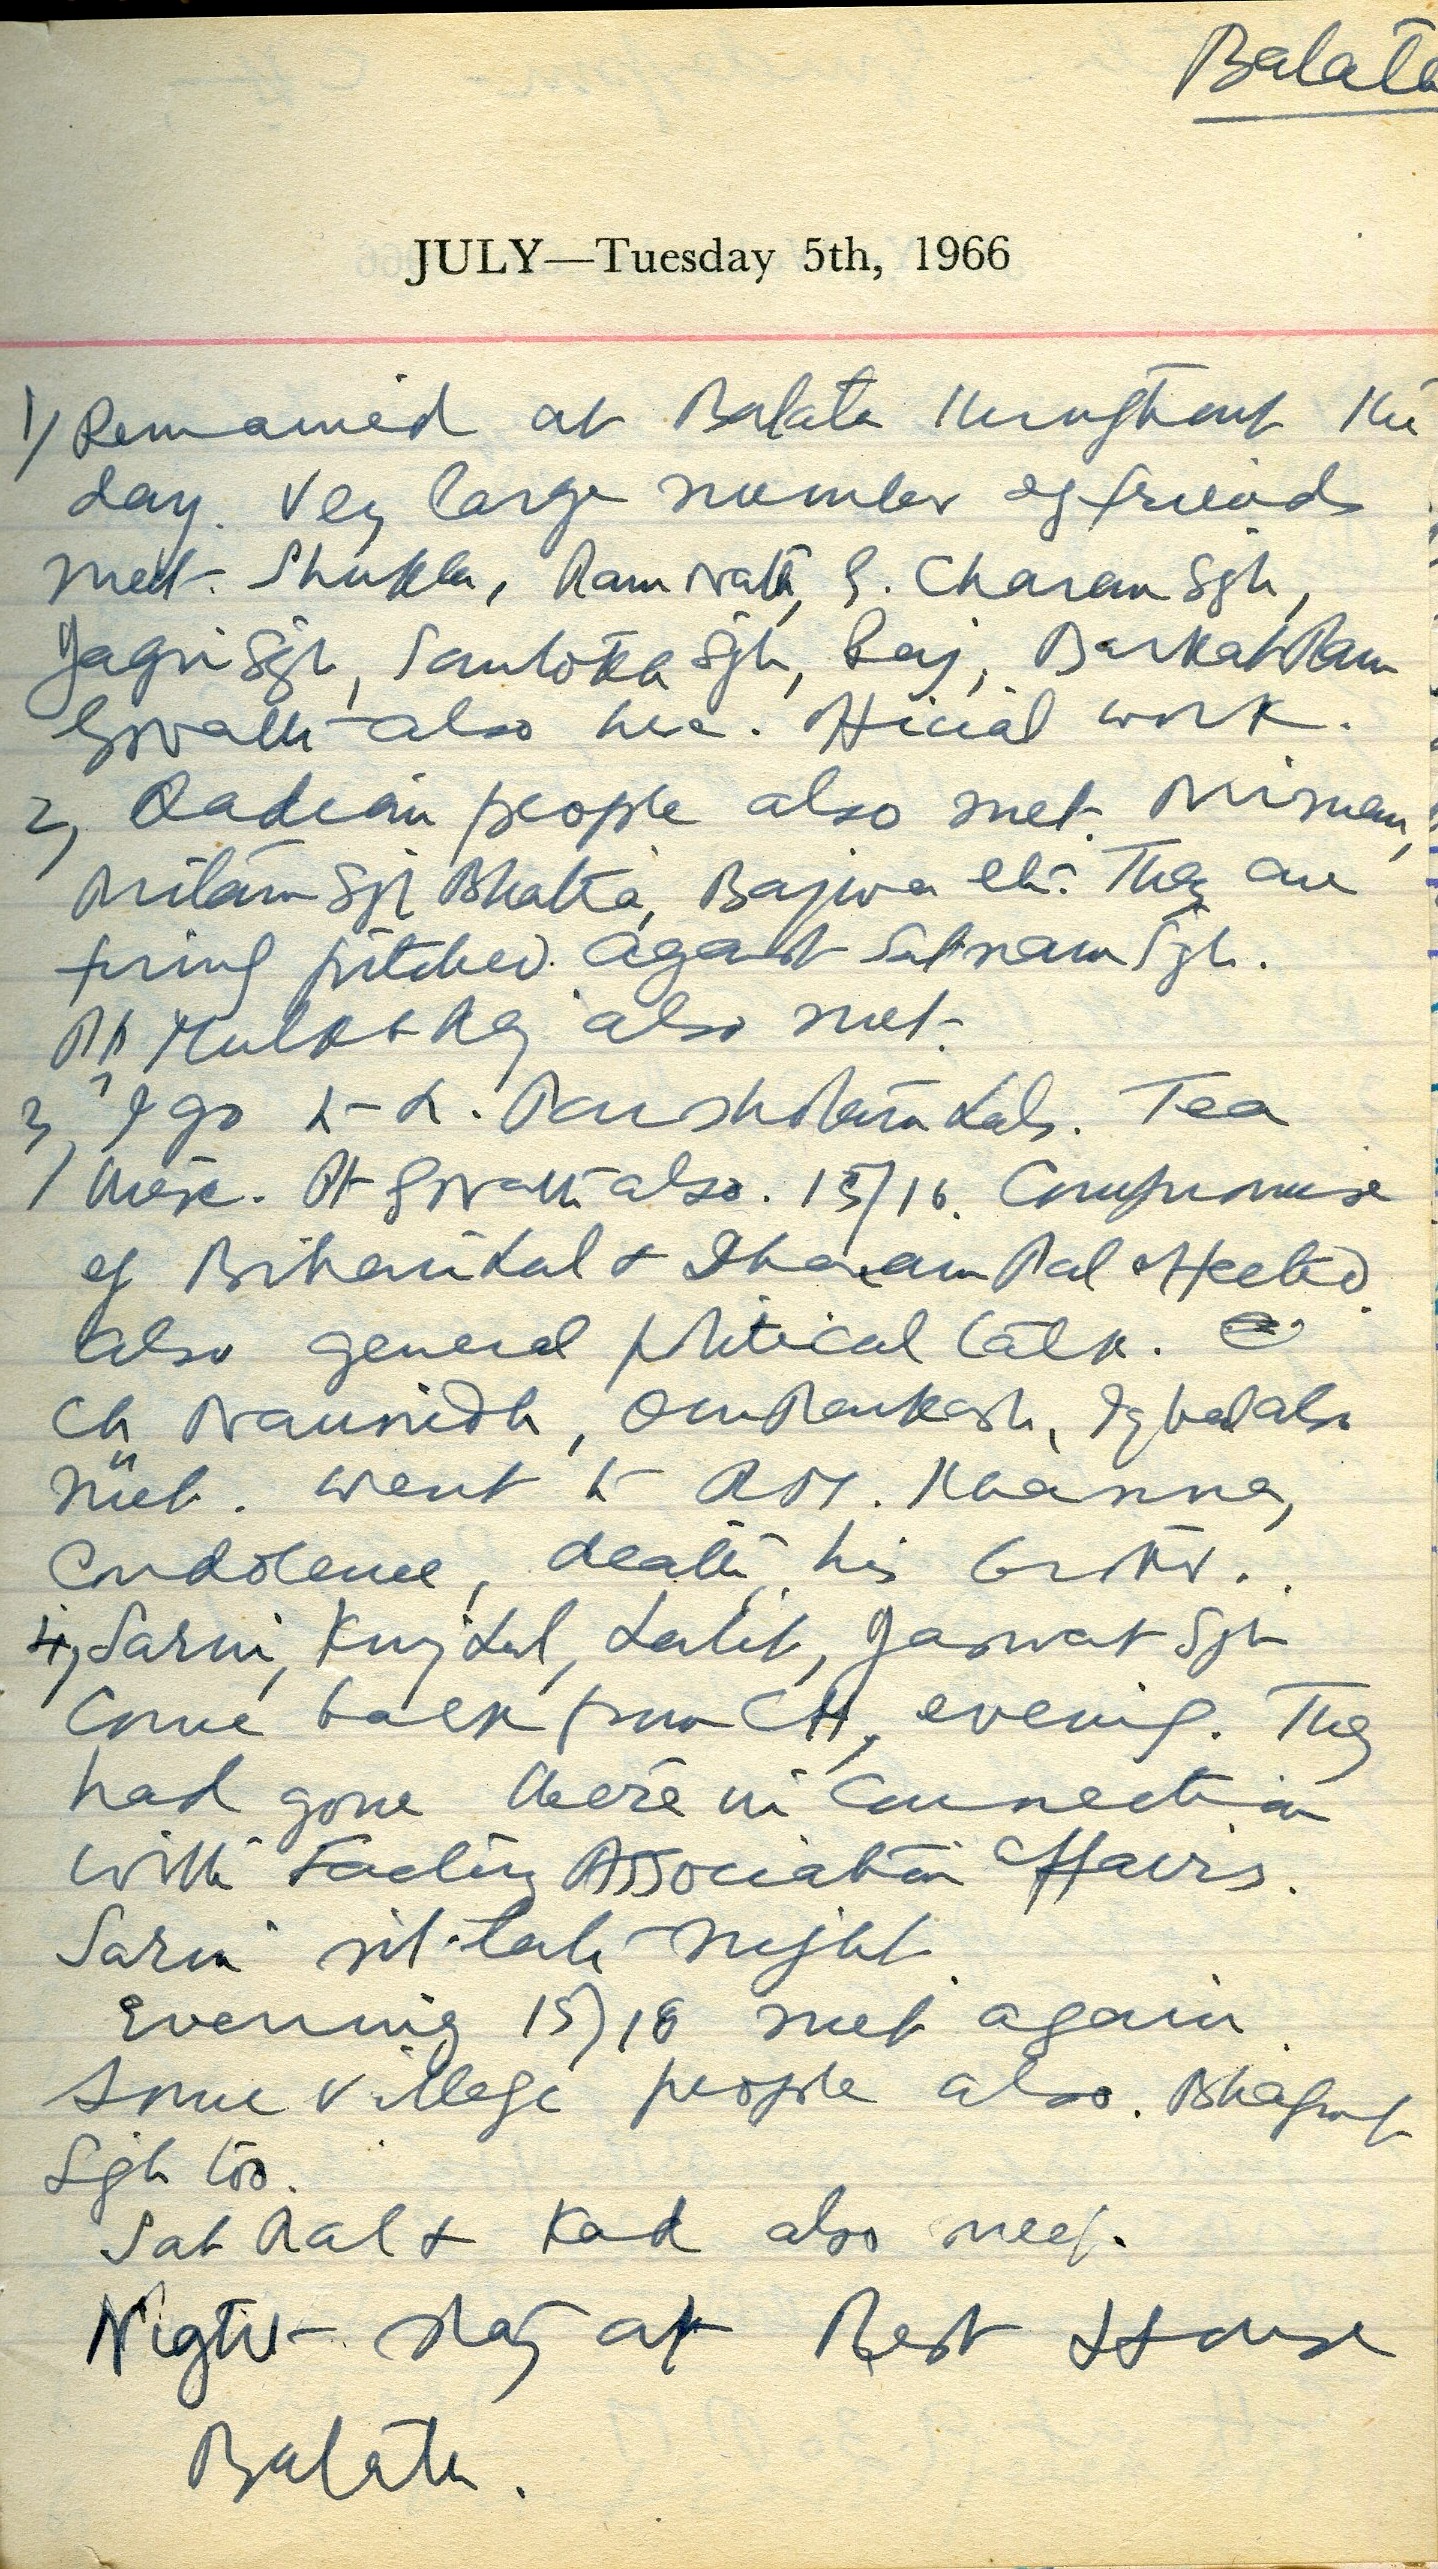 Batala
JULY—Tuesday 5th, 1966
1) Remained at Batala throughout the
day. Very large number of friends
met. Shukla, Ram Nath, S. Charan Sgh,
Jagir Sgh, Santokh Sgh, Raj, Barkat Ram
Gorakh also here. Official work.
2) Qadian people also met.
Pritam Sgh Bhatia, Bajwa etc. They are
firing pitched against Satnam Sgh.
Pt Mulkh Raj also met.
3) I go to L. Parshotam Lal's. Tea
there. Pt Gorakh also. 15/16. Compromise
of Bihari Lal & Dharam Pal effected.
Also general political talk.
Ch Naunidh, Om Parkash, Iqbal also
met. Went to R. N. Khanna,
condolence, death his brother.
4) Sarin, Kunj Lal, Lalit, Jaswant Sgh
come back from CH, evening. They
had gone there in connection
with Factory Association affairs.
Sarin sit late night.
Evening 15/16 met again.
Some village people also. Bhagwant
Sgh too.
Sat Pal & Kad also meet.
Night stay at Rest House
Batala.